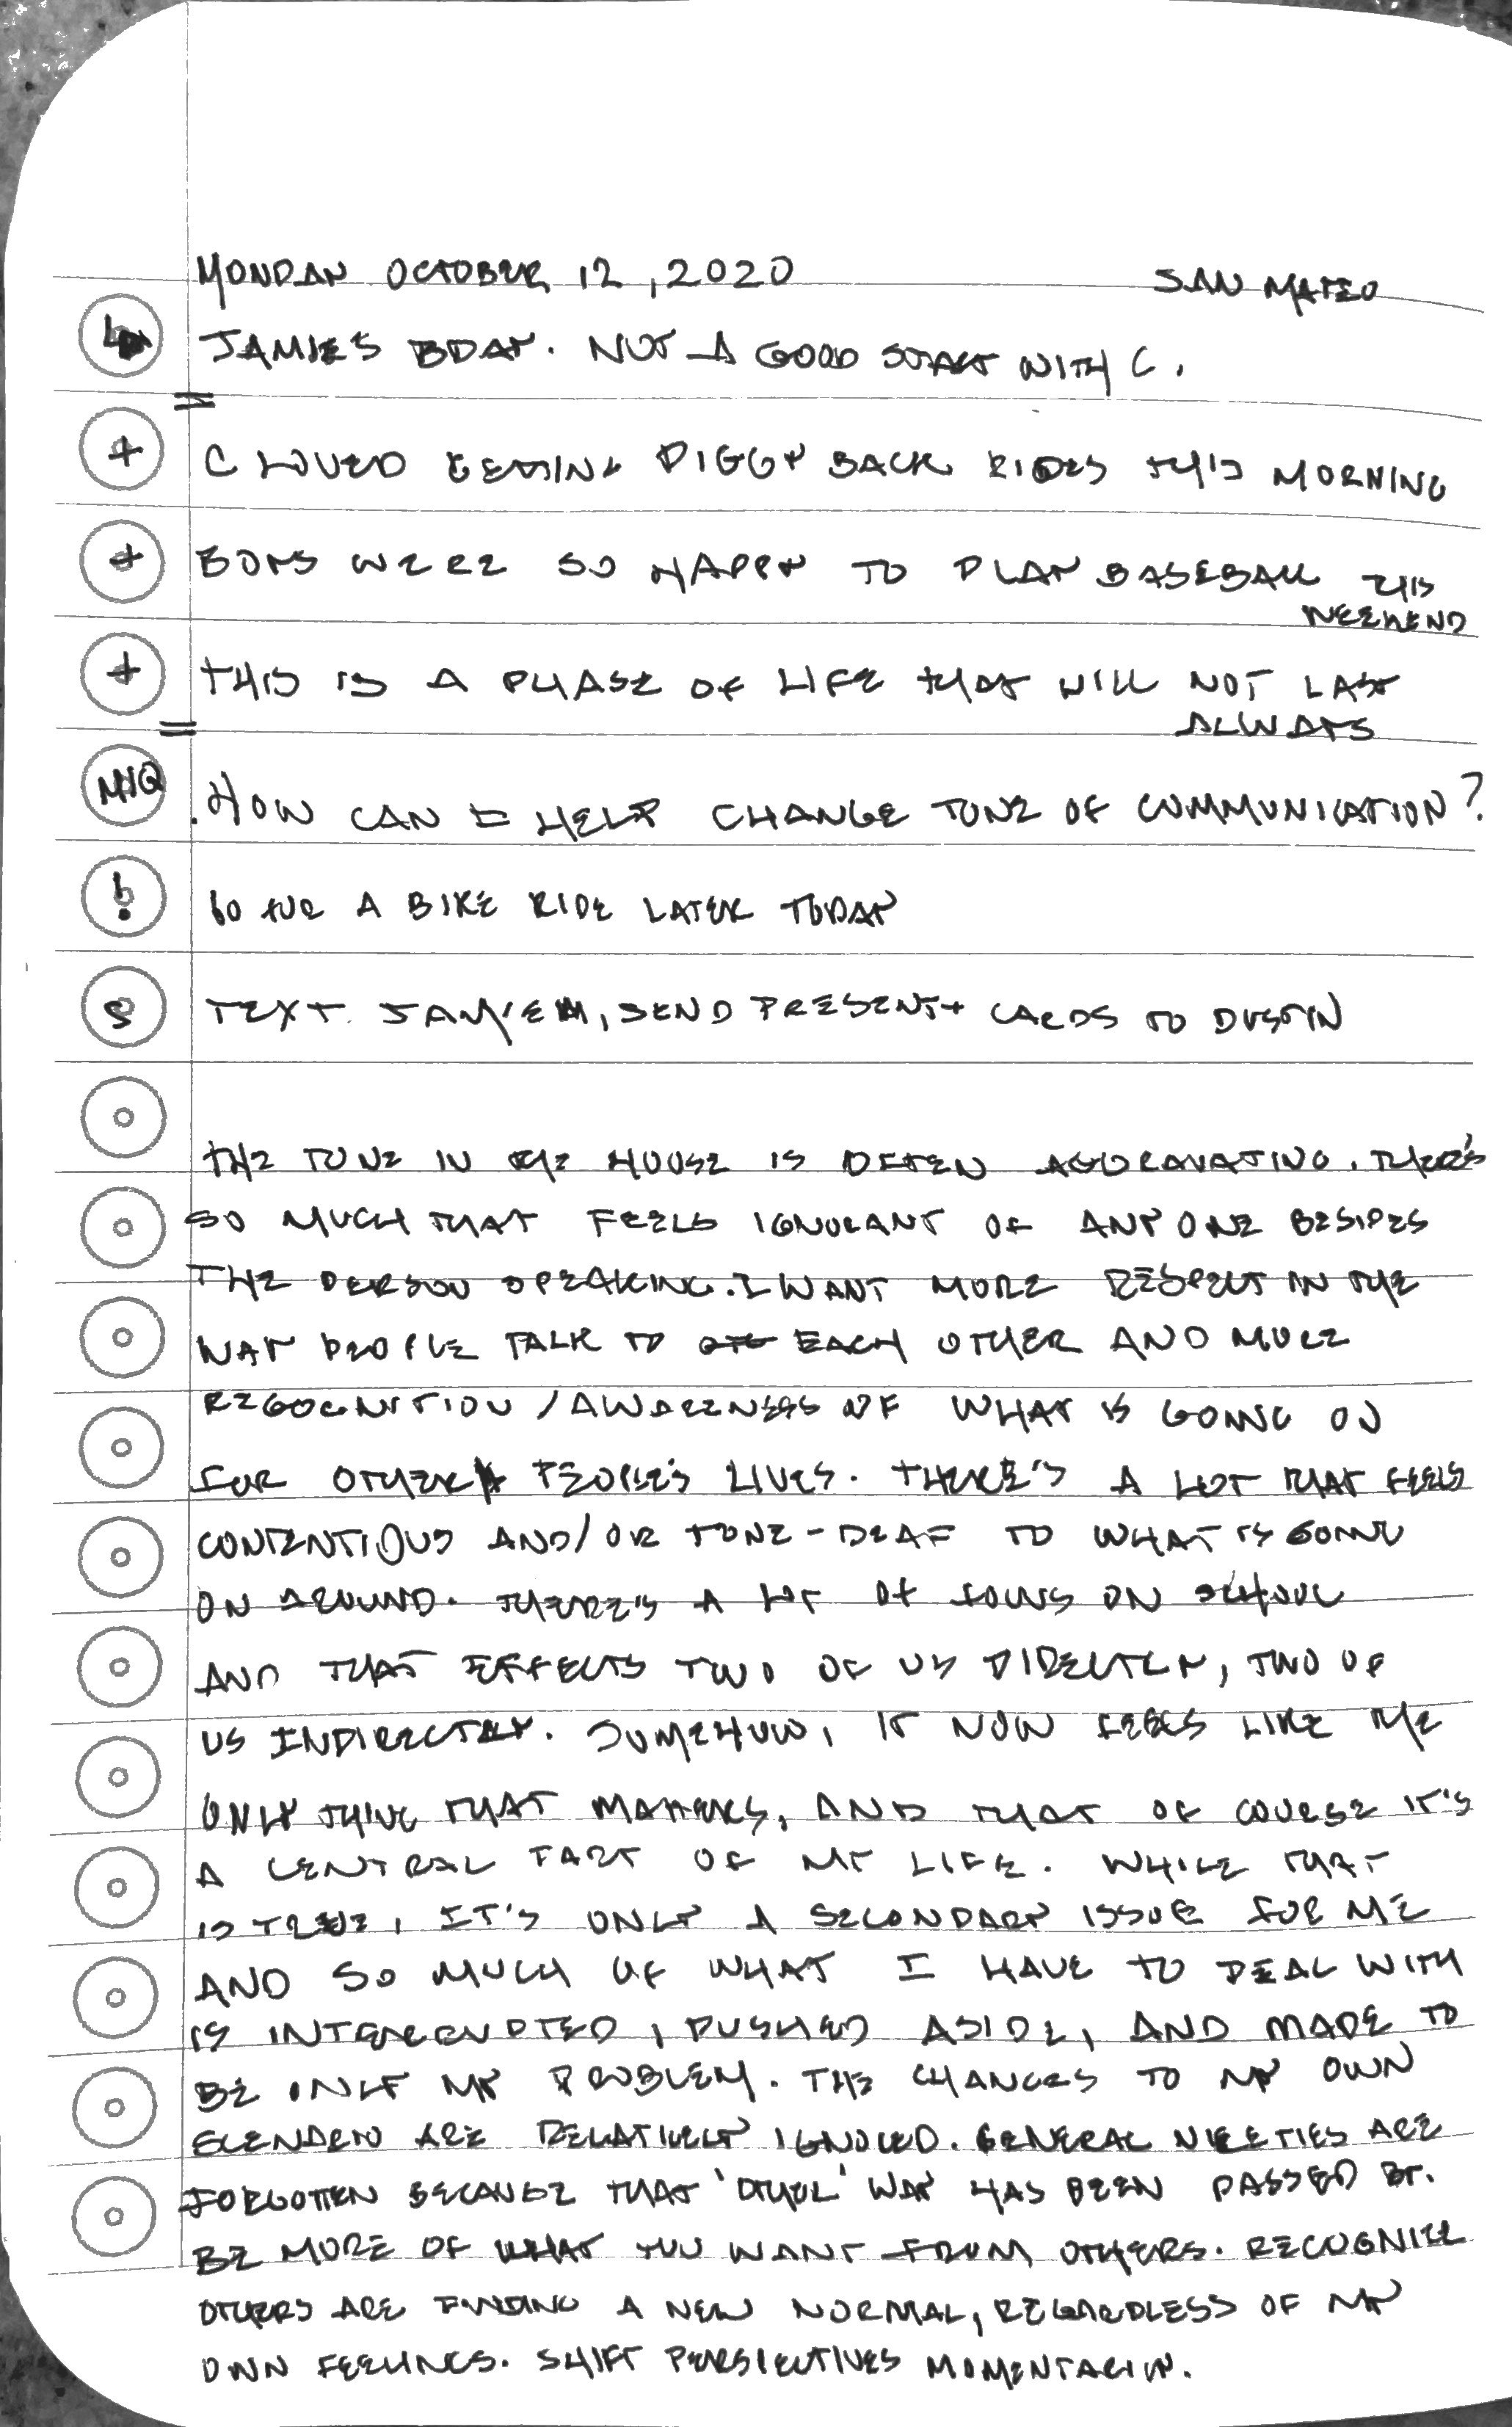 MONDAY OCTOBER 12, 2020 SAN MATEO
JAMIE'S BDAY. NOT A GOOD START WITH C.
=
+ C LOVED GETTING PIGGY BACK RIDES THIS MORNING
+ BOYS WERE SO HAPPY TO PLAY BASEBALL THIS
WEEKEND
+ THIS IS A PHASE OF LIFE THAT WILL NOT LAST
= ALWAYS
MIQ HOW CAN I HELP CHANGE TONE OF COMMUNICATION?
! GO FOR A BIKE RIDE LATER TODAY
S TEXT JAMIE M, SEND PRESENT + CARDS TO DUSTIN
THE TONE IN THE HOUSE IS OFTEN AGGRAVATING. THERE'S
SO MUCH THAT FEELS IGNORANT OF ANYONE BESIDES
THE PERSON SPEAKING. I WANT MORE RESPECT IN THE
WAY PEOPLE TALK TO EACH OTHER AND MORE
REGOGNITION / AWARENESS OF WHAT IS GOING ON
FOR OTHER PEOPLE'S LIVES. THERE'S A LOT THAT FEELS
CONTENTIOUS AND/OR TONE-DEAF TO WHAT IS GOING
ON AROUND. THERE'S A LOT OF FOCUS ON SCHOOL
AND THAT EFFECTS TWO OF US DIRECTLY, TWO OF
US INDIRECTLY. SOMEHOW, IT NOW FEELS LIKE THE
ONLY THING THAT MATTERS, AND THAT OF COURSE IT'S
A CENTRAL PART OF MY LIFE. WHILE THAT
IS TRUE, IT'S ONLY A SECONDARY ISSUE FOR ME
AND SO MUCH OF WHAT I HAVE TO DEAL WITH
IS INTERRUPTED, PUSHED ASIDE, AND MADE TO
BE ONLY MY PROBLEM. THE CHANGES TO MY OWN
SCENARIO ARE RELATIVELY IGNORED. GENERAL NICETIES ARE
FORGOTTEN BECAUSE THAT 'OTHER' WAY HAS BEEN PASSED BY.
BE MORE OF WHAT YOU WANT FROM OTHERS. RECOGNIZE
OTHERS ARE FINDING A NEW NORMAL, REGARDLESS OF MY
OWN FEELINGS. SHIFT PERSPECTIVES MOMENTARILY.